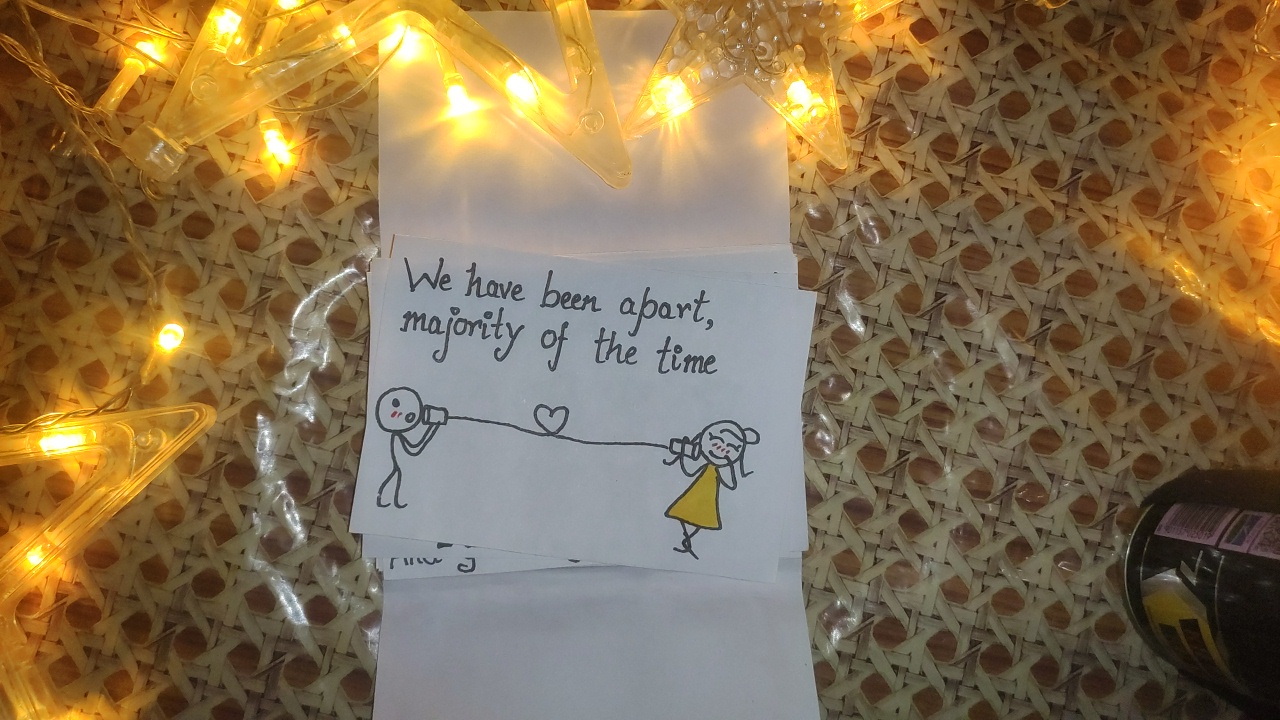 We have been apart,
majority of the time